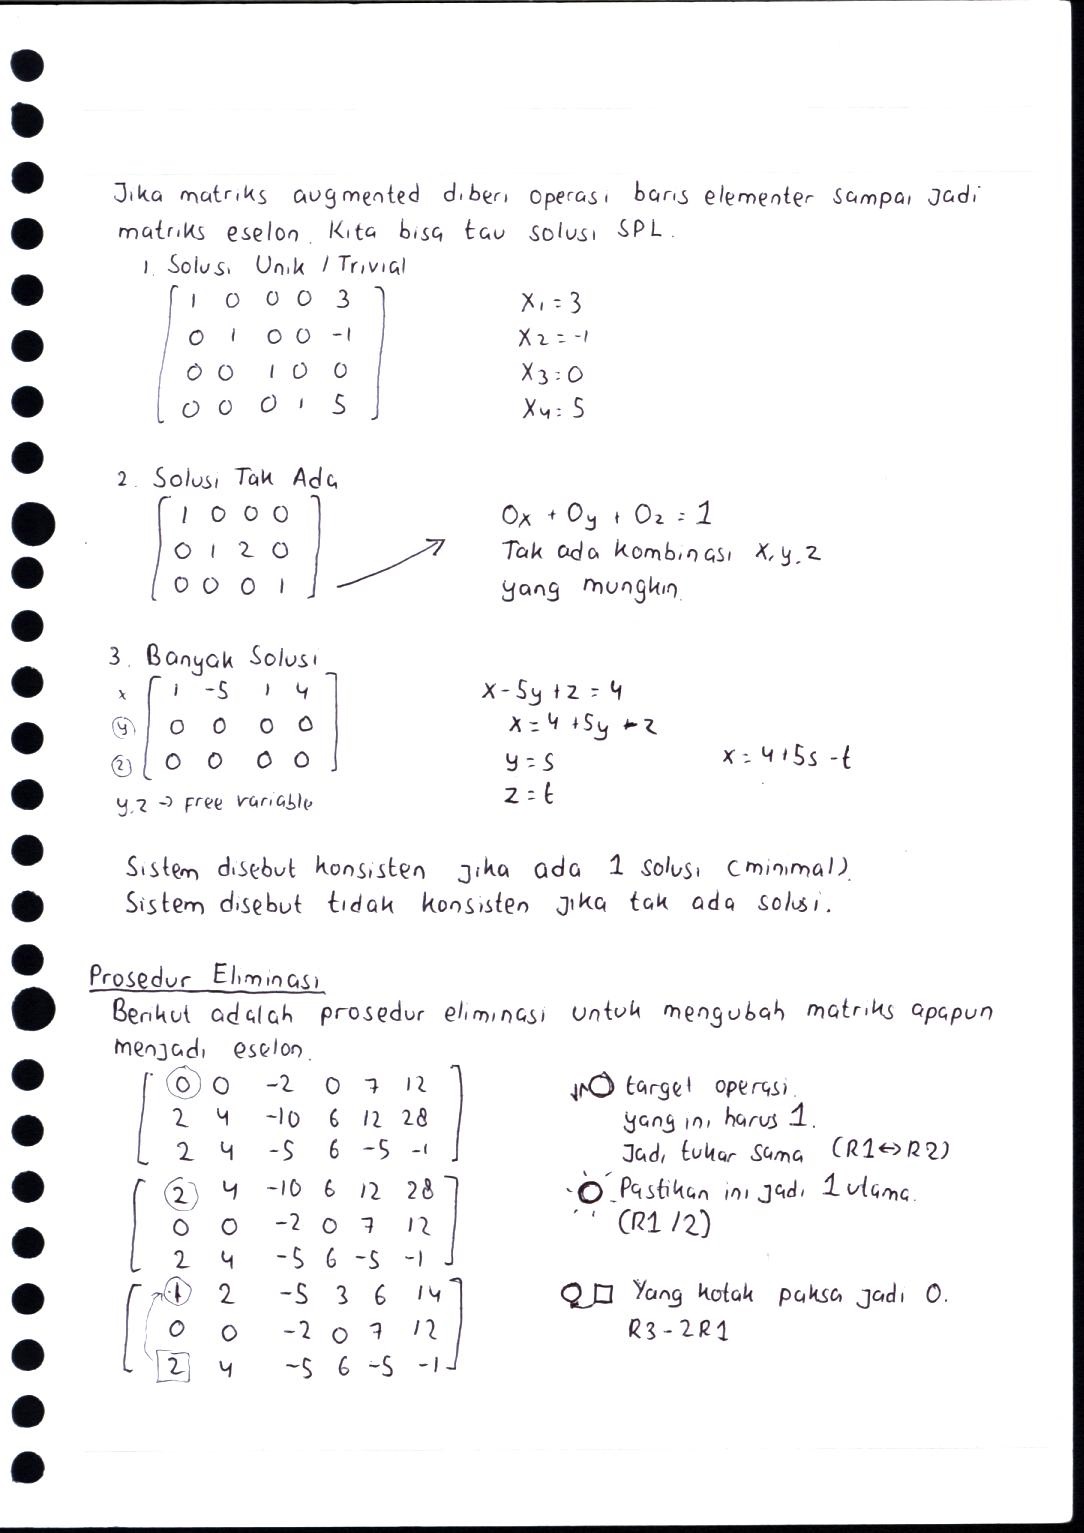 Jika matriks augmented diberi operasi baris elementer sampai jadi
matriks eselon. Kita bisa tau solusi SPL.
1. Solusi Unik / Trivial
1 0 0 0 3
0 1 0 0 -1
0 0 1 0 0
0 0 0 1 5
x1 = 3
x2 = -1
x3 = 0
x4 = 5
2. Solusi Tak Ada
1 0 0 0
0 1 2 0
0 0 0 1
0x + 0y + 0z = 1
Tak ada kombinasi x, y, z
yang mungkin.
3. Banyak Solusi
x 1 -5 1 4
y 0 0 0 0
z 0 0 0 0
y, z -> free variable
x - 5y + z = 4
x = 4 + 5y - z
y = s
z = t
x = 4 + 5s - t
Sistem disebut konsisten jika ada 1 solusi (minimal).
Sistem disebut tidak konsisten jika tak ada solusi.
Prosedur Eliminasi
Berikut adalah prosedur eliminasi untuk mengubah matriks apapun
menjadi eselon.
0 0 -2 0 7 12
2 4 -10 6 12 28
2 4 -5 6 -5 -1
target operasi.
yang ini harus 1.
Jadi tukar sama (R1↔R2)
2 4 -10 6 12 28
0 0 -2 0 7 12
2 4 -5 6 -5 -1
Pastikan ini jadi 1 utama.
(R1/2)
1 2 -5 3 6 14
0 0 -2 0 7 12
2 4 -5 6 -5 -1
Yang kotak paksa jadi 0.
R3 - 2R1